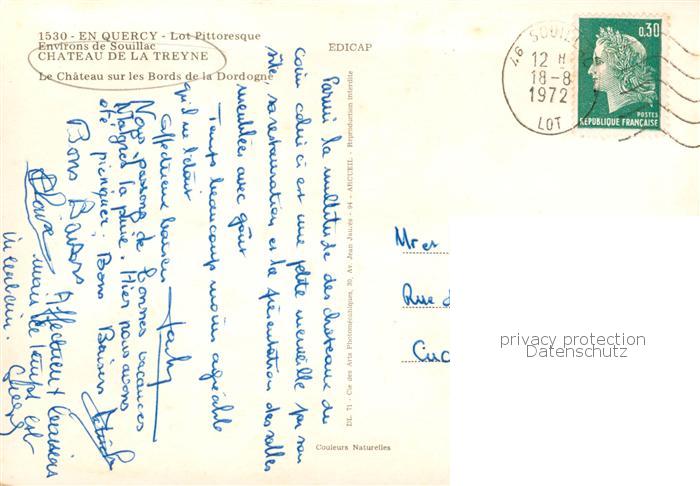 1530 - EN QUERCY - Lot Pittoresque
Environs de Souillac
CHATEAU DE LA TREYNE
Le Château sur les Bords de la Dordogne
EDICAP
SOUILL
46
12 H
18-8
1972
LOT
0,30
POSTES
REPUBLIQUE FRANÇAISE
Parmi la multitude des chateaux du
coin celui ci est une petite merveille par son
site, sa restauration et la présentation des salles
meublées avec goût
Temps beaucoup moins agréable
qu'il ne l'était
Affectueux baisers
Nous passons de bonnes vacances
Malgrés la pluie. Hier nous avons
été piqniquer. Bons Baisers
Bons Baisers
Affectueux baisers
mais le temps est
incertain.
DL 71 - Cie des Arts Photomécaniques, 30, Av. Jean Jaurès - 94 - ARCUEIL - Reproduction interdite
Mr et
Rue
Couleurs Naturelles
privacy protection
Datenschutz